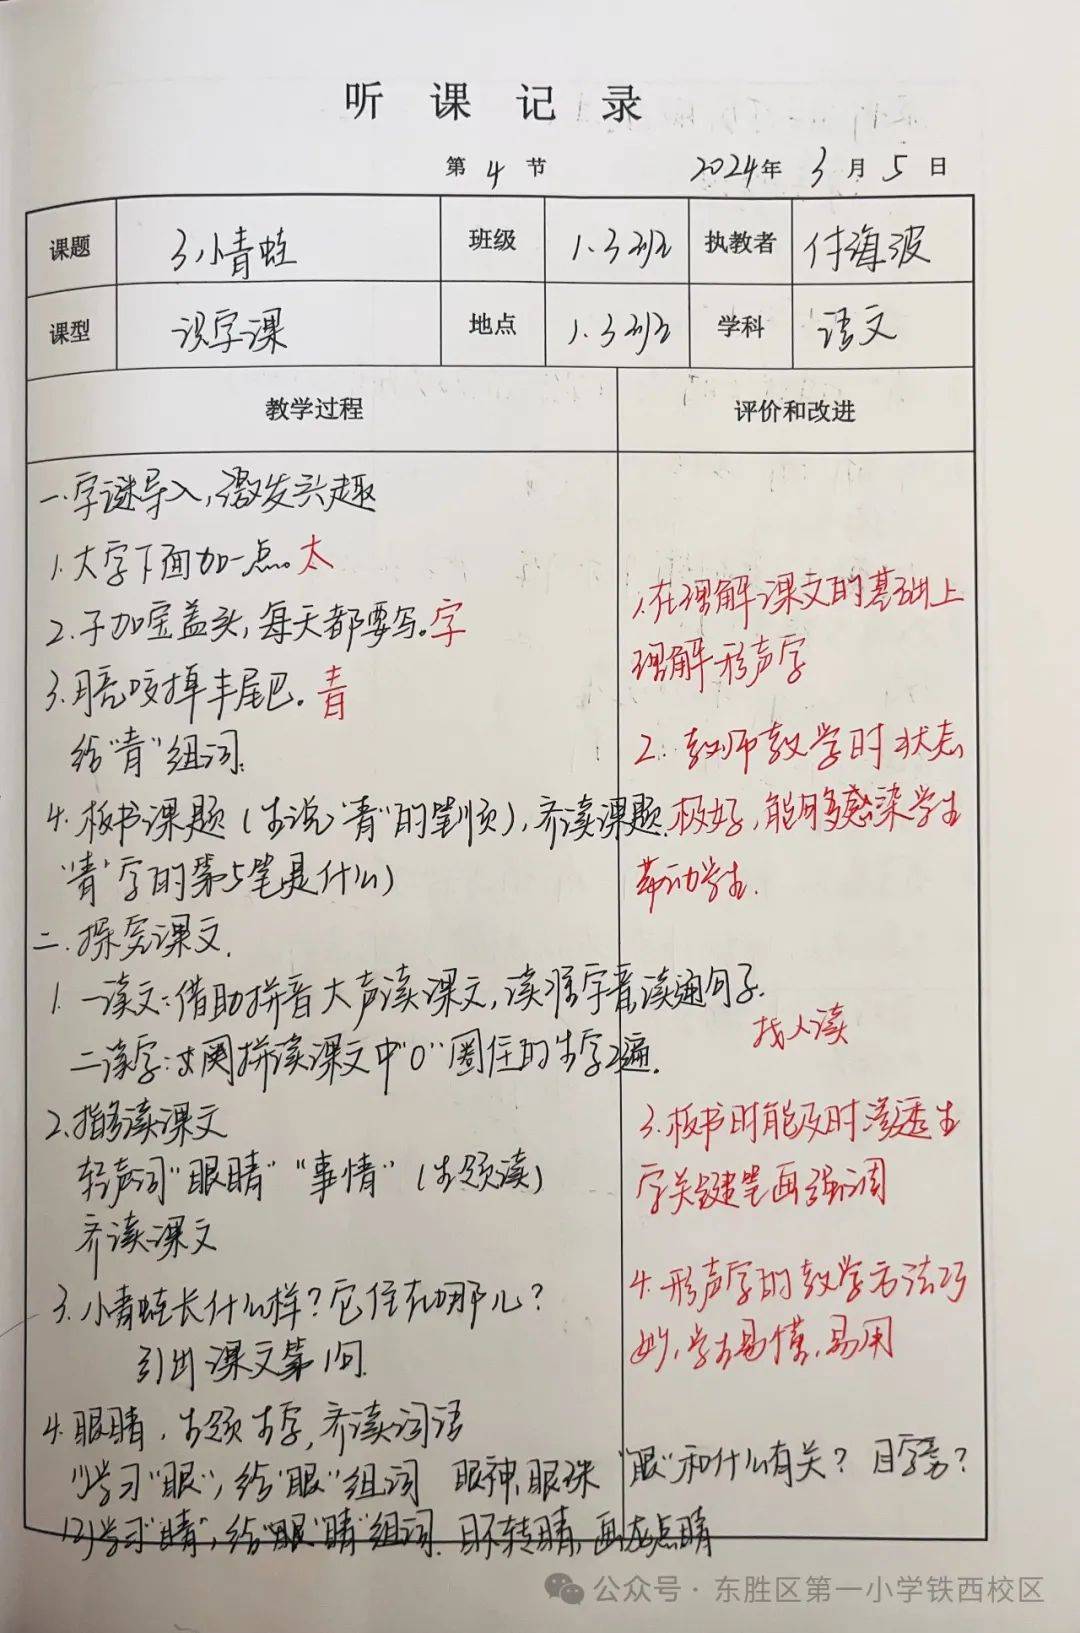 听课记录
第 4 节 2024年 3 月 5 日
课题 3小青蛙 班级 1.3班 执教者 付海波
课型 识字课 地点 1.3班 学科 语文
教学过程 评价和改进
一.字谜导入,激发兴趣
1.大字下面加一点。太
2.子加宝盖头,每天都要写。字
3.月亮咬掉丰尾巴。青
给"青"组词.
4.板书课题(生说"青"的笔顺),齐读课题.
"青"字的第5笔是什么)
二.探究课文.
1.一读文:借助拼音大声读课文,读准字音,读通句子.
二读字:拼读课文中"O"圈住的生字2遍.
2.指名读课文
轻声词"眼睛""事情"(生领读)
齐读课文
3.小青蛙长什么样?它住在哪儿?
引出课文第1句.
4.眼睛.生领生字,齐读词语
(1)学习"眼",给"眼"组词 眼神,眼珠 "眼"和什么有关?目字旁?
(2)学习"睛",给"眼"睛"组词.目不转睛,画龙点睛
1.在理解课文的基础上
理解形声字
2.教师教学时状态
极好,能够感染学生
带动学生.
找人读
3.板书时能及时渗透生
字关键笔画强调
4.形声字的教学方法巧
妙,学生易懂,易用
公众号·东胜区第一小学铁西校区